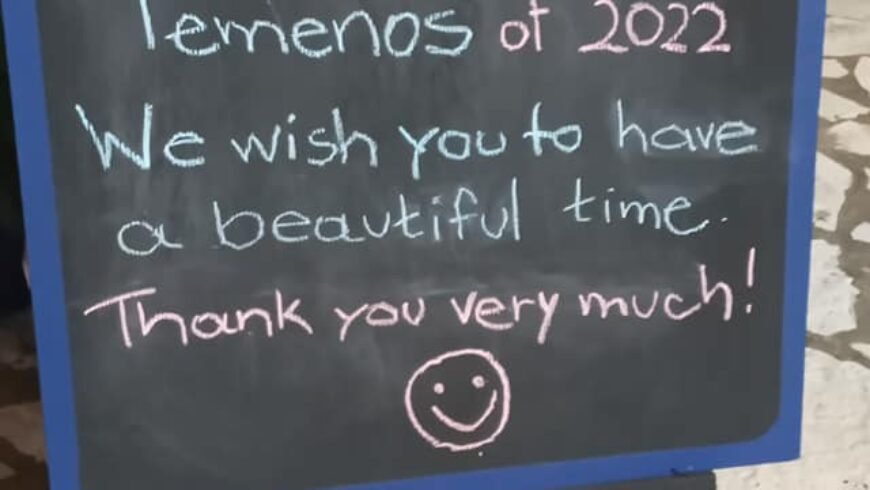 Temenos of 2022
We wish you to have
a beautiful time.
Thank you very much!